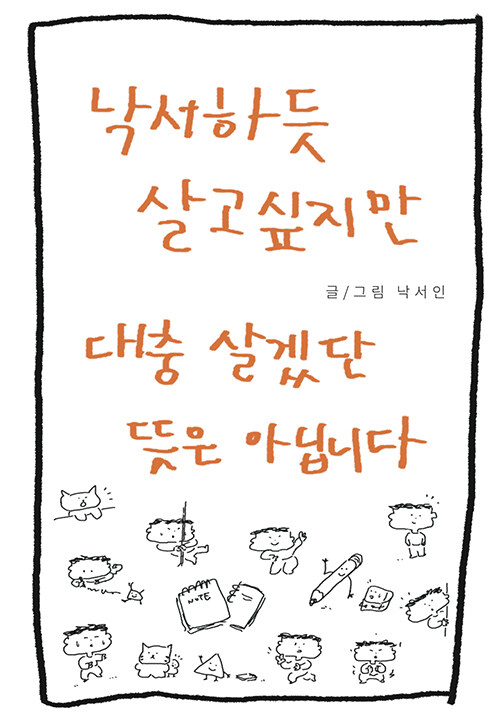 낙서하듯
살고싶지만
글/그림 낙서인
대충 살겠단
뜻은 아닙니다
NOTE